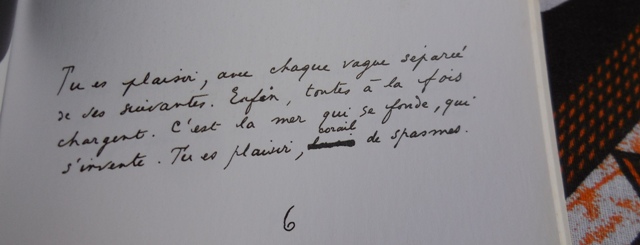 Tu es plaisir, avec chaque vague séparée
de ses suivantes. Enfin, toutes à la fois
chargent. C'est la mer qui se fonde, qui
s'invente. Tu es plaisir, corail de spasmes.
6